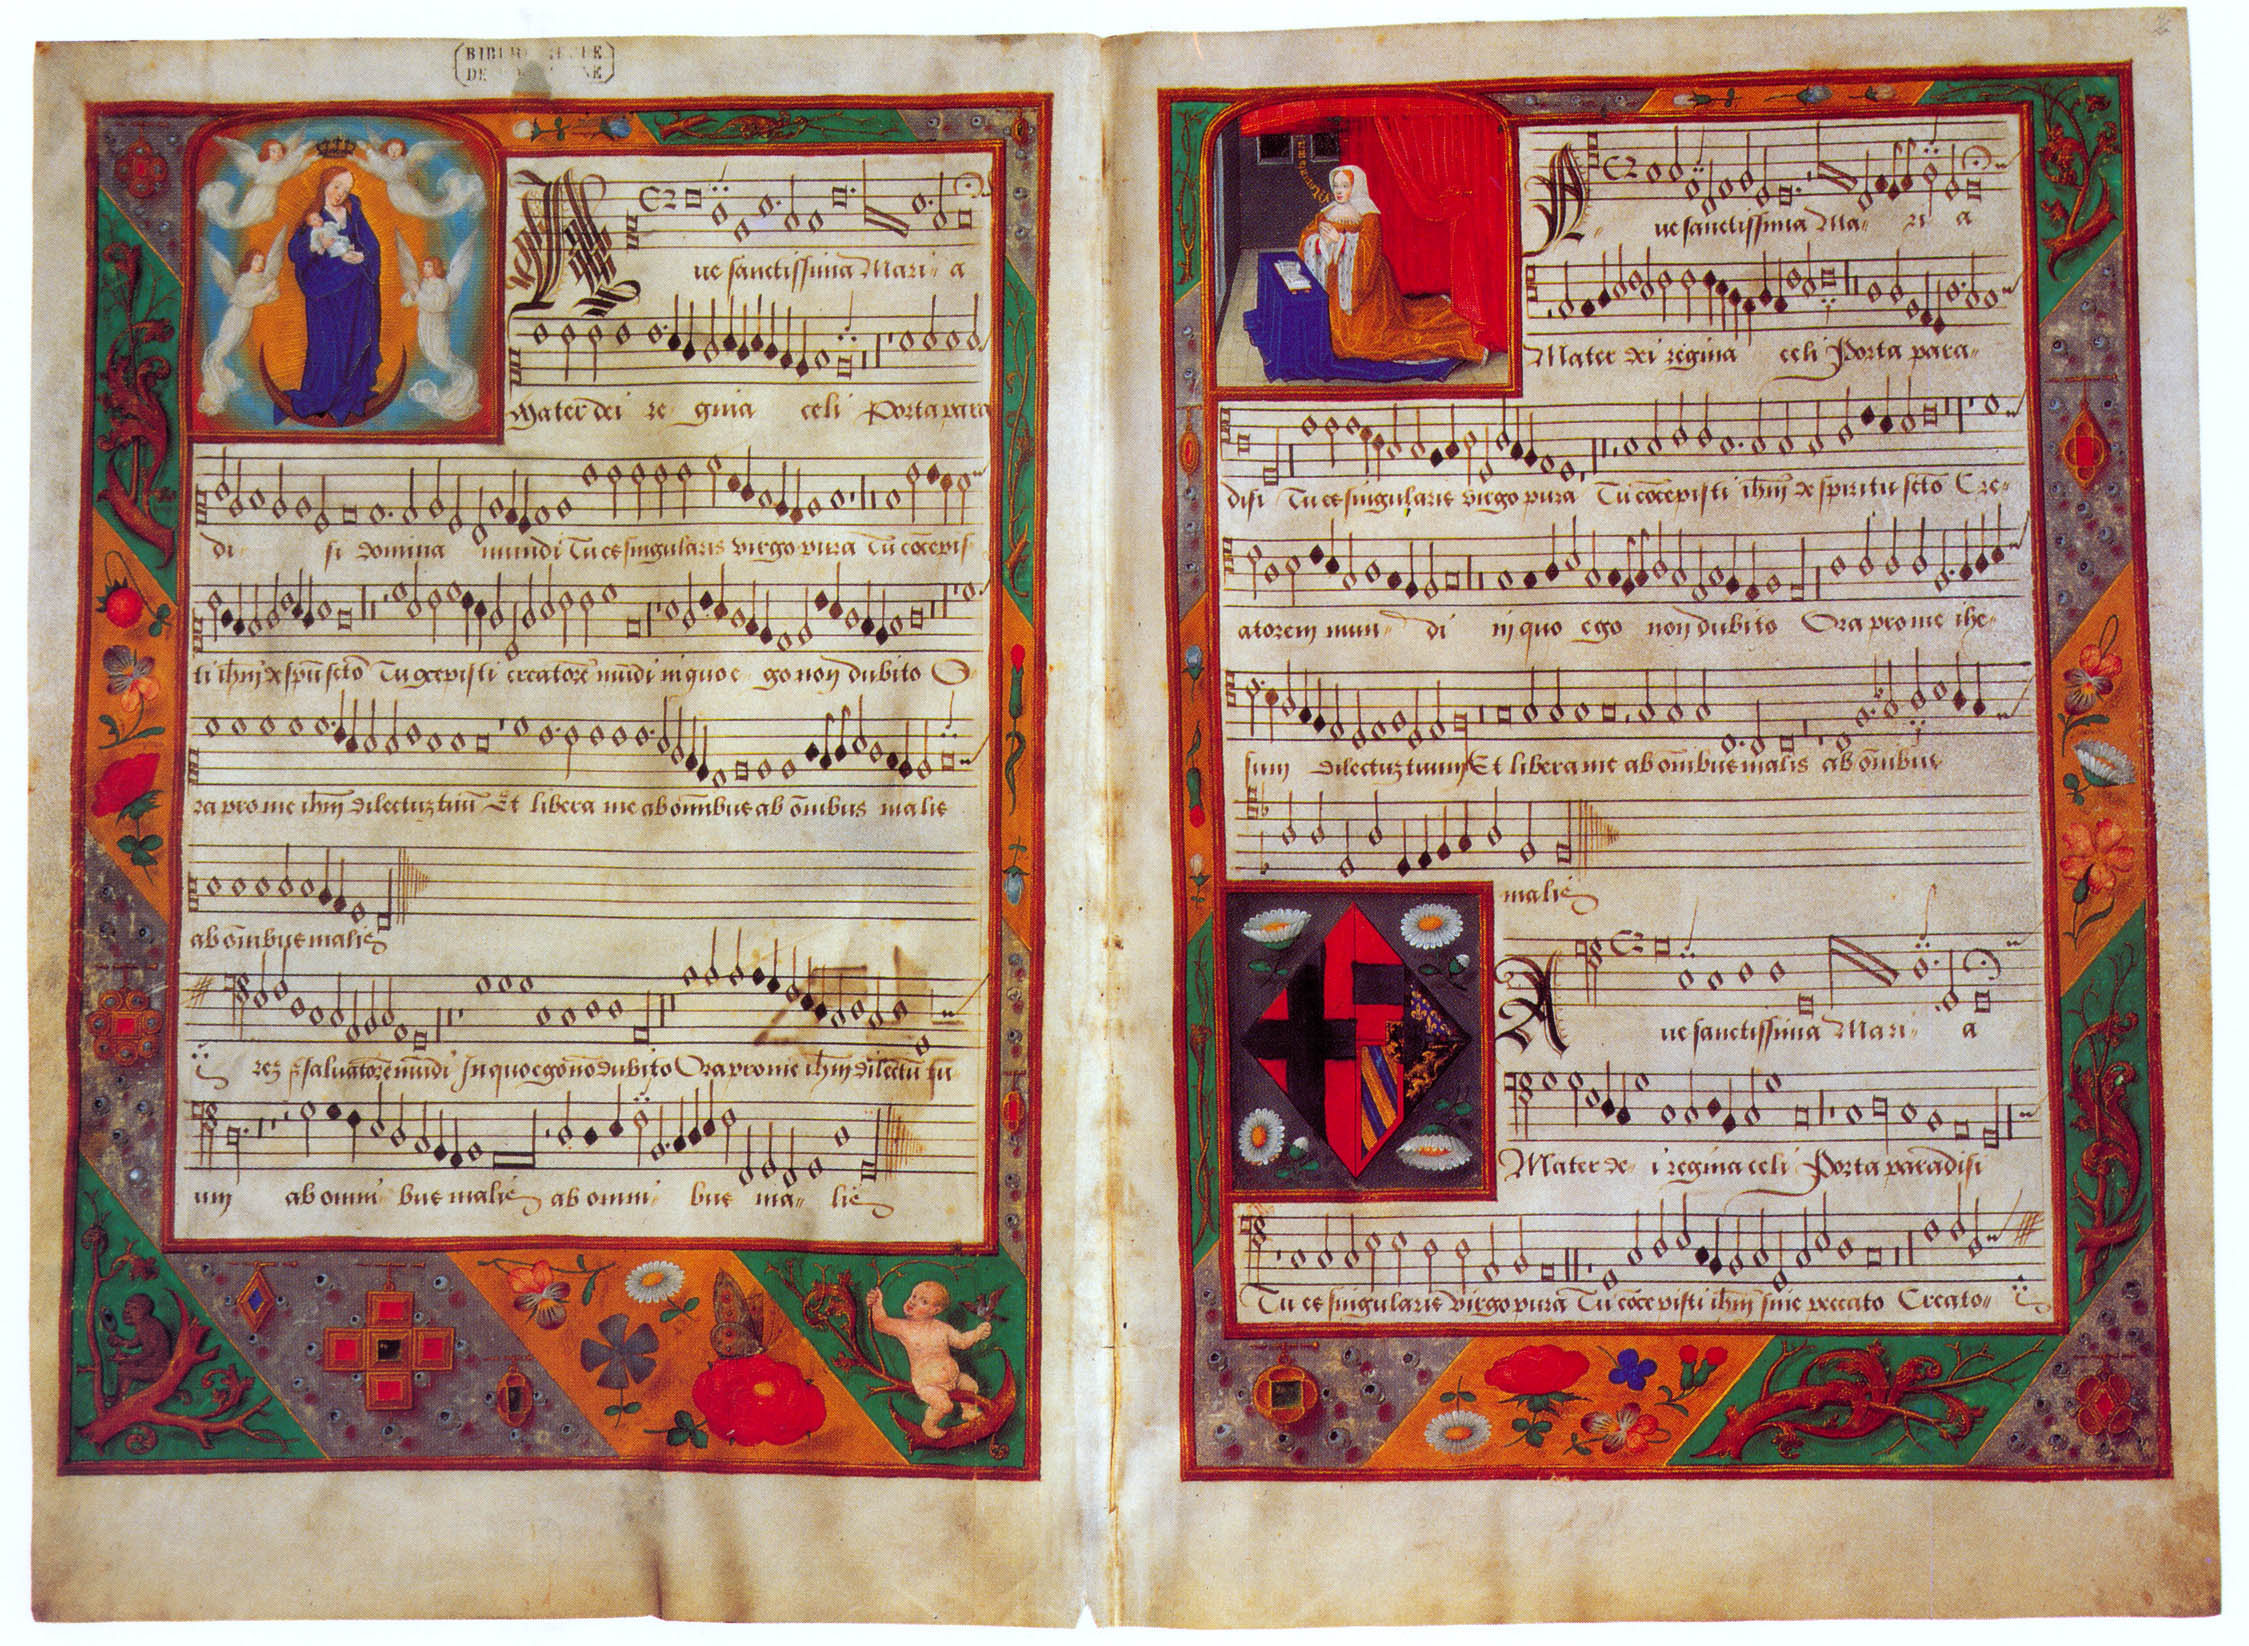 BIBLI
DE
ue sanctissima Mari- a
Mater dei re- gina celi Porta para
di- si domina mundi Tu es singularis virgo pura Tu cōcepis
ti ihm̄ d͛ spū sctō Tu cepisti creatorē mūdi in quo e- go non dubito O-
ra pro me ihm̄ dilectuz tuū Et libera me ab omnibus ab ōnibus malis
ab ōnibus malis
salvatorē mūdi In quo ego nō dubito Ora pro me ihm̄ dilectū tu-
um ab omni- bus malis ab omni- bus ma- lis
2
Aue sanctissima Ma- ri a
Mater dei regina celi Porta para-
disi Tu es singularis virgo pura Tu cōcepisti ihm̄ de spiritu sctō Cre-
atorem mun- di in quo ego non dubito Ora pro me ihe-
sum dilectuz tuum Et libera me ab ōnibus malis ab ōnibus
malis
Aue sanctissima Mari- a
Mater de- i regina celi Porta paradisi
Tu es singularis virgo pura Tu cōcepisti ihm̄ sine peccato Creato-